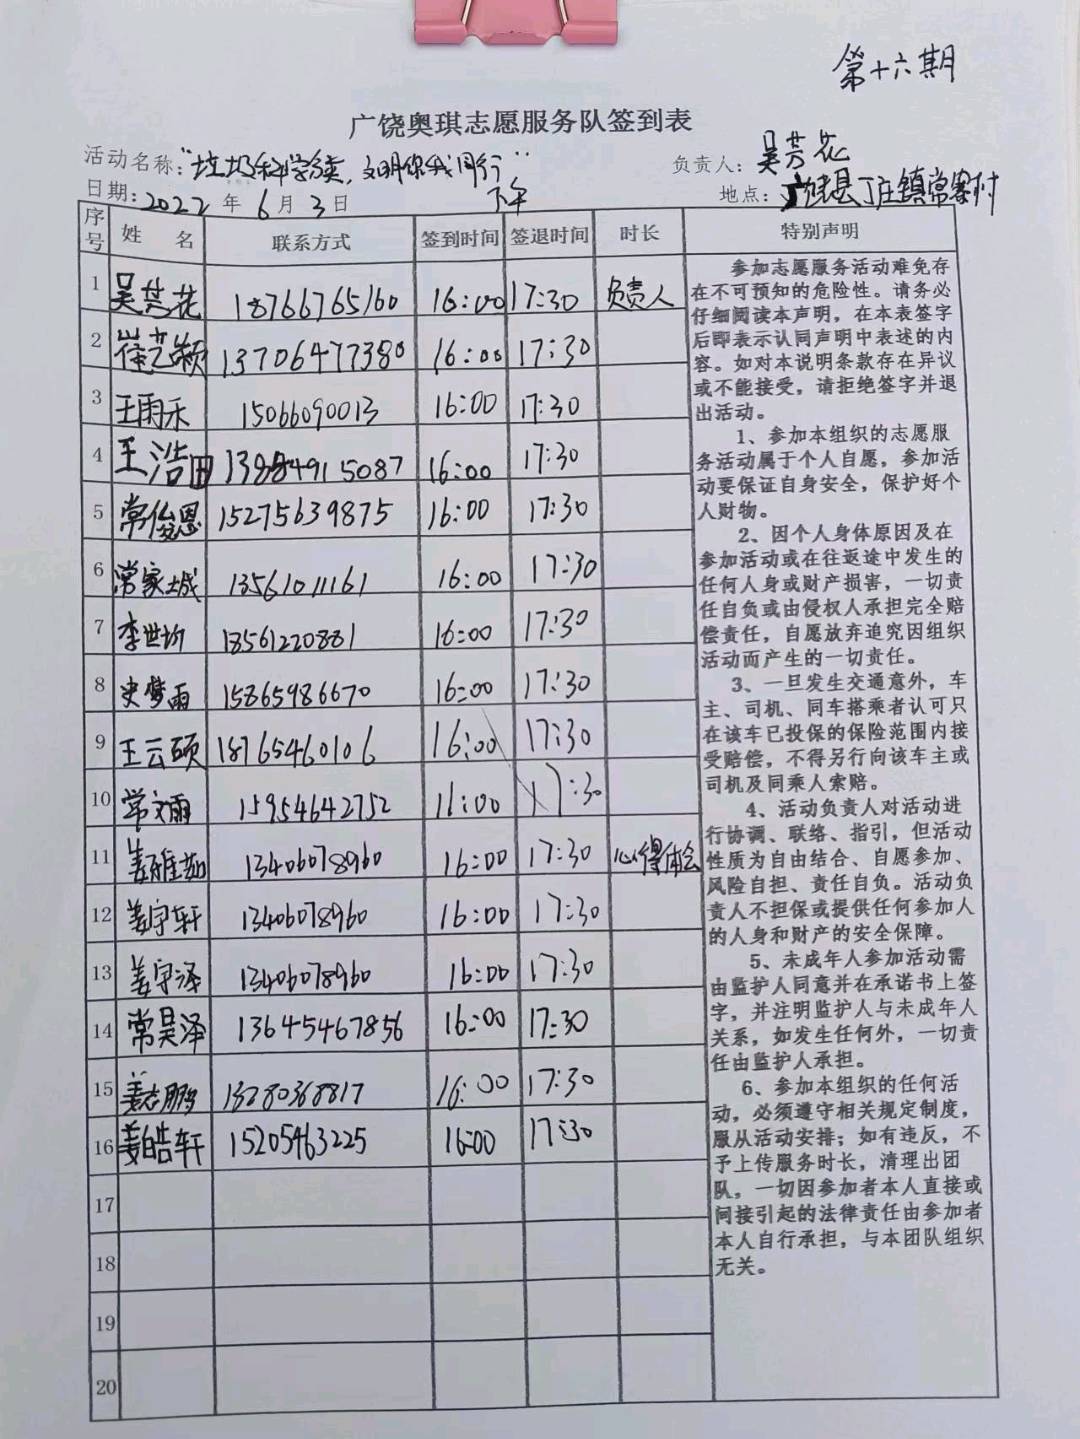 第十六期
广饶奥琪志愿服务队签到表
活动名称：“垃圾科学分类，文明你我同行”
负责人：吴芳花
日期：2022年6月3日 下午
地点：广饶县丁庄镇常寨村
序号 姓名 联系方式 签到时间 签退时间 时长 特别声明
1 吴芳花 18766765160 16:00 17:30 负责人
2 崔艺颖 13706477380 16:00 17:30
3 王雨禾 15066090013 16:00 17:30
4 王浩田 16:00 17:30
5 常俊恩 15275639875 16:00 17:30
6 常家城 13561011161 16:00 17:30
7 李世 18561220881 16:00 17:30
8 史梦雨 15865986670 16:00 17:30
9 王云硕 18765460106 16:00 17:30
10 常文雨 15954642752 16:00 17:30
11 姜雅茹 13406078960 16:00 17:30 心得体会
12 姜宇轩 13406078960 16:00 17:30
13 姜宇泽 13406078960 16:00 17:30
14 常昊泽 13645467856 16:00 17:30
15 姜志鹏 13280368817 16:00 17:30
16 姜皓轩 15205463225 16:00 17:30
17
18
19
20
参加志愿服务活动难免存
在不可预知的危险性。请务必
仔细阅读本声明，在本表签字
后即表示认同声明中表述的内
容。如对本说明条款存在异议
或不能接受，请拒绝签字并退
出活动。
1、参加本组织的志愿服
务活动属于个人自愿，参加活
动要保证自身安全，保护好个
人财物。
2、因个人身体原因及在
参加活动或在往返途中发生的
任何人身或财产损害，一切责
任自负或由侵权人承担完全赔
偿责任，自愿放弃追究因组织
活动而产生的一切责任。
3、一旦发生交通意外，车
主、司机、同车搭乘者认可只
在该车已投保的保险范围内接
受赔偿，不得另行向该车主或
司机及同乘人索赔。
4、活动负责人对活动进
行协调、联络、指引，但活动
性质为自由结合、自愿参加、
风险自担、责任自负。活动负
责人不担保或提供任何参加人
的人身和财产的安全保障。
5、未成年人参加活动需
由监护人同意并在承诺书上签
字，并注明监护人与未成年人
关系，如发生任何外，一切责
任由监护人承担。
6、参加本组织的任何活
动，必须遵守相关规定制度，
服从活动安排；如有违反，不
予上传服务时长，清理出团
队，一切因参加者本人直接或
间接引起的法律责任由参加者
本人自行承担，与本团队组织
无关。